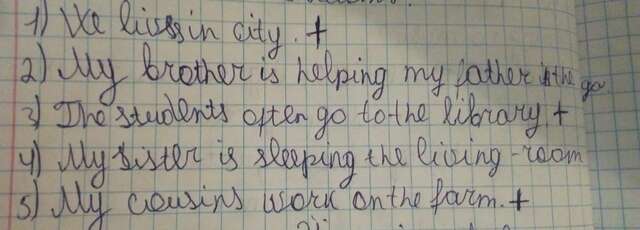 1) We lives in city. +
2) My brother is helping my father in the ga
3) The students often go to the library +
4) My sister is sleeping the living-room
5) My cousins work on the farm. +